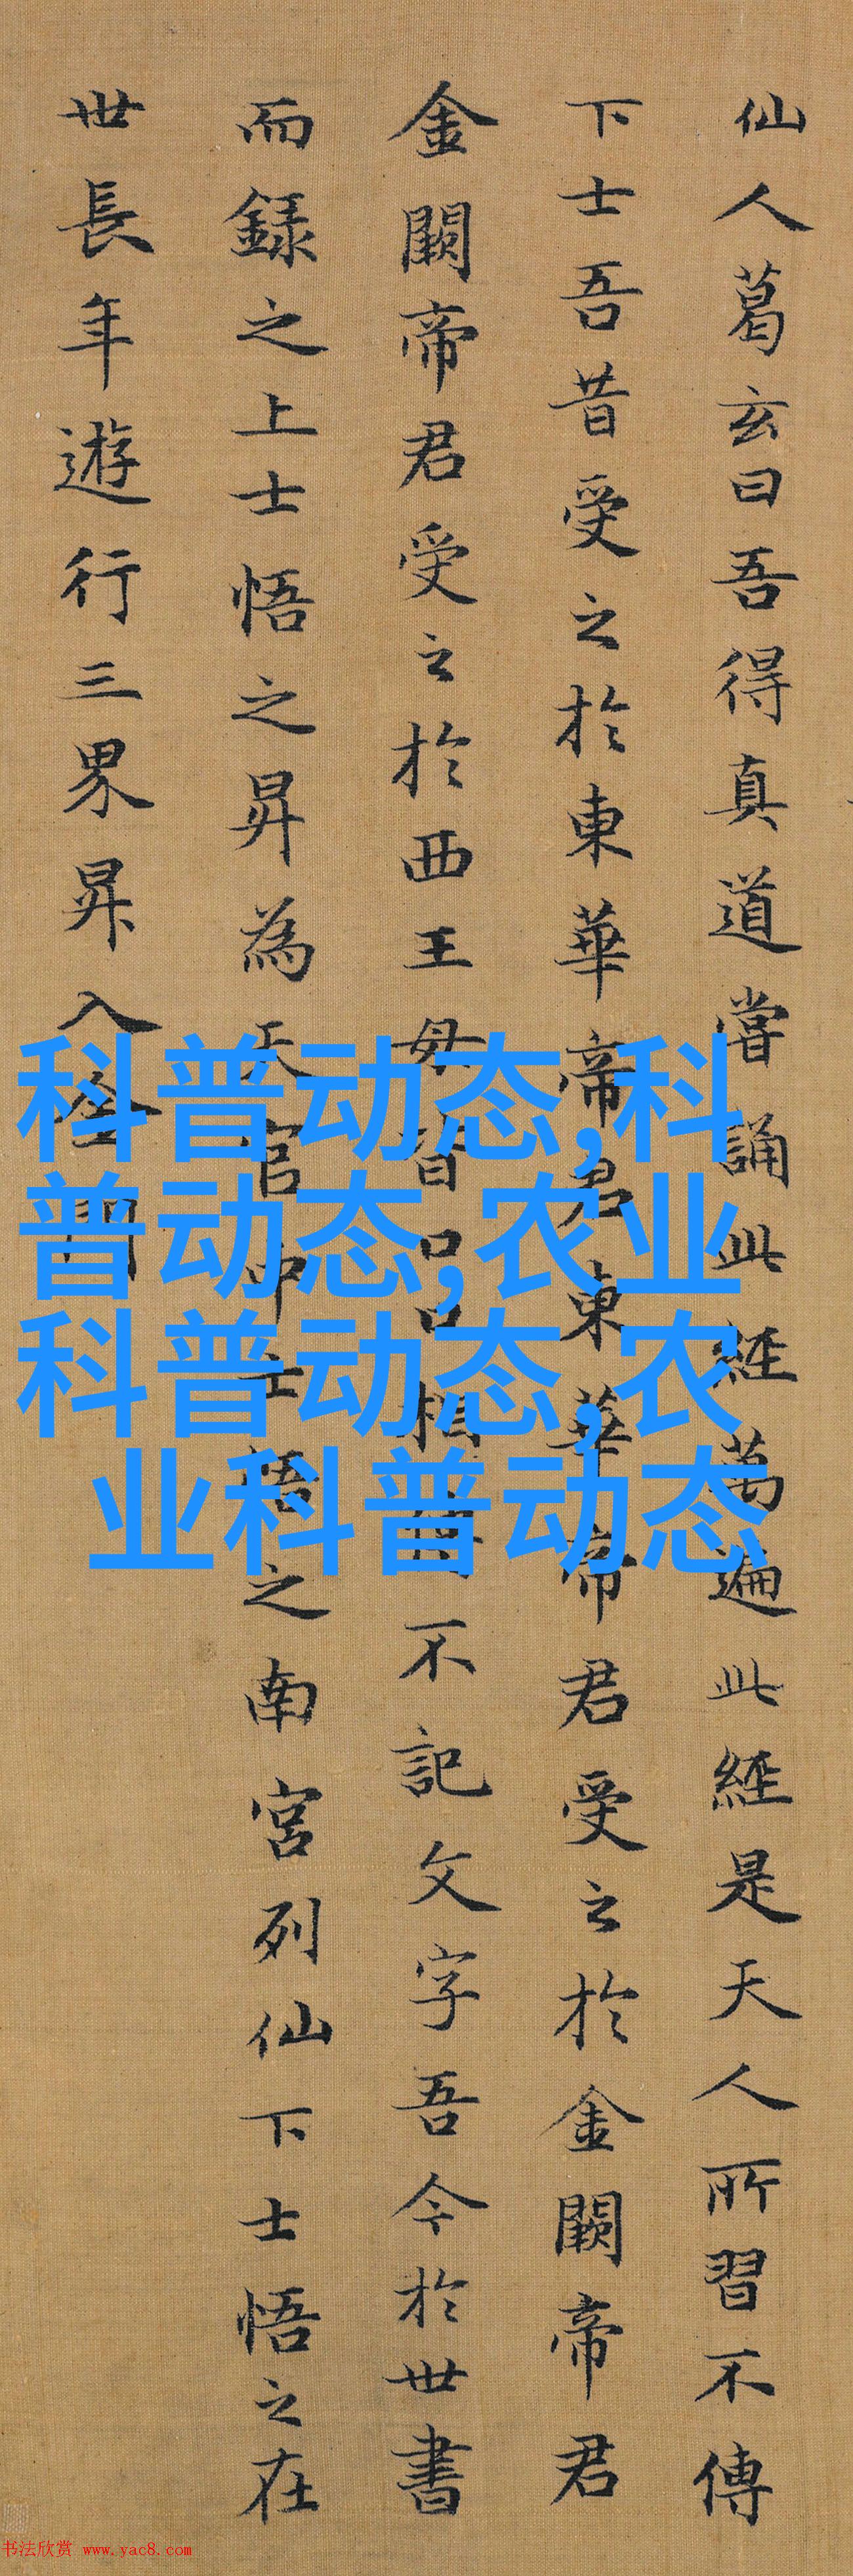 仙人葛玄曰吾得真道嘗誦此經萬遍此經是天人所習不傳
下士吾昔受之於東華帝君東華帝君受之於金闕帝君
金闕帝君受之於西王母皆口口相傳不記文字吾今於世書
而録之上士悟之昇為天官中士悟之南宮列仙下士悟之在
世長年遊行三界昇入金門
科普动态,科
普动态,农业
科普动态,农
业科普动态
书法欣赏 www.yac8.com